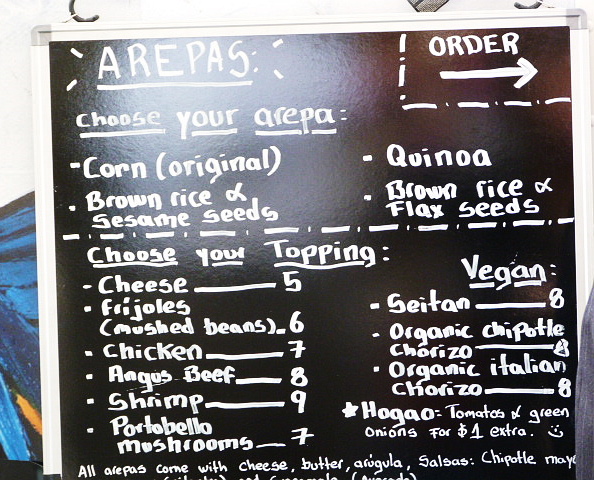 AREPAS:
ORDER
Choose your arepa:
- Corn (original)
- Quinoa
- Brown rice & Sesame seeds
- Brown rice & Flax seeds
Choose your Topping:
- Cheese 5
- Frijoles
(mushed beans) 6
- Chicken 7
- Angus Beef 8
- Shrimp 9
- Portobello
mushrooms 7
Vegan:
- Seitan 8
- Organic chipotle
Chorizo 8
- Organic italian
Chorizo 8
★ Hogao: Tomatos & green
Onions For $1 extra.
All arepas come with cheese, butter, arúgula, Salsas: Chipotle mayo